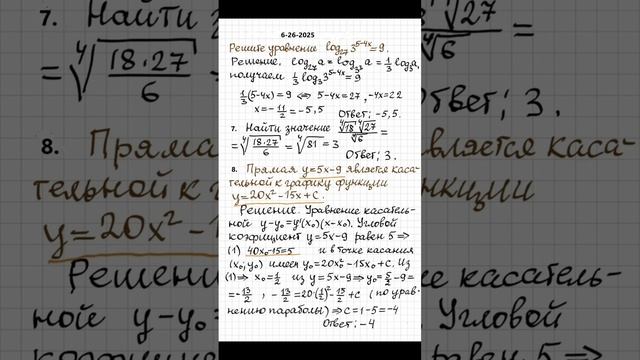 6-26-2025
Решите уравнение log₂₇ 3^(5-4x) = 9.
Решение. log₂₇ a = log₃³ a = 1/3 log₃ a,
получаем 1/3 log₃ 3^(5-4x) = 9
1/3 (5-4x) = 9 ⇔ 5-4x = 27, -4x = 22
x = -11/2 = -5,5 Ответ: -5,5.
7. Найти значение ⁴√18 ⁴√27 / ⁴√6 =
= ⁴√(18·27/6) = ⁴√81 = 3
Ответ: 3.
8. Прямая y=5x-9 является каса-
тельной к графику функции
y=20x²-15x+c.
Решение. Уравнение касатель-
ной y-y₀=y'(x₀)(x-x₀). Угловой
коэфициент y=5x-9 равен 5 ⇒
(1) 40x₀-15=5 и в точке касания
(x₀,y₀) имеем y₀=20x₀²-15x₀+c. Из
(1) ⇒ x₀=1/2 из y=5x-9 ⇒ y₀=5/2-9=
=-13/2, -13/2=20·(1/2)²-15/2+c (по урав-
нению параболы) ⇒ c=1-5=-4
Ответ: -4
7. Найти
27
= ⁴√(18·27/6)
√6
Ответ: 3.
8. Прямая
вляется каса-
тельной к г
нкции
y=20x²-15
Решение
касатель-
ной y-y₀=
Угловой